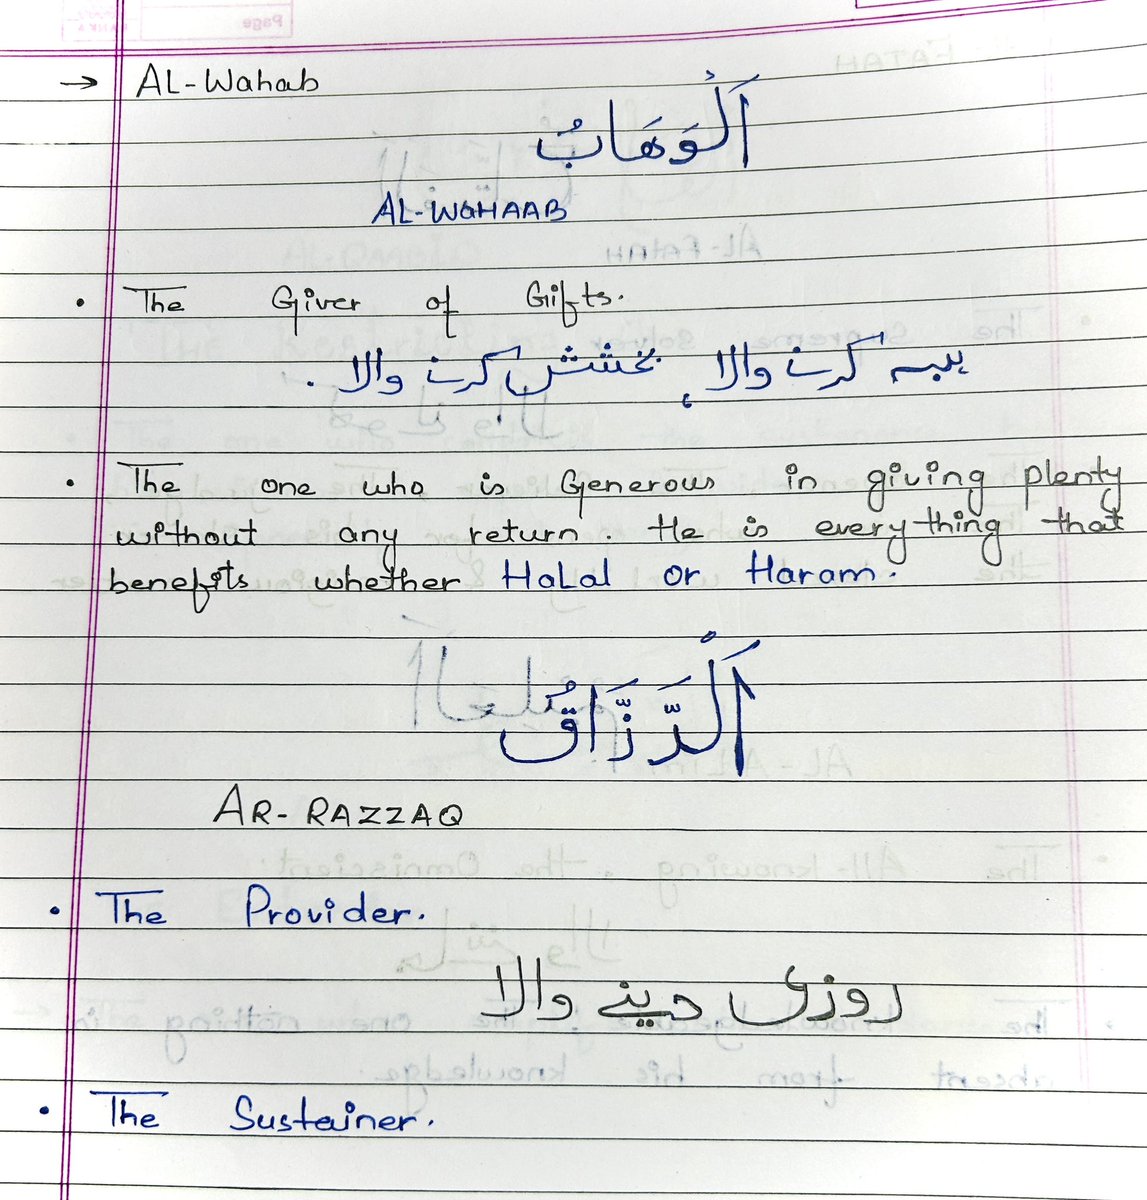 → AL-Wahab
اَلْوَهَابُ
AL-WAHAAB
• The Giver of Gifts.
ہبہ کرنے والا، بخشش کرنے والا.
• The one who is Generous in giving plenty
without any return. He is everything that
benefits whether Halal or Haram.
اَلْرَّزَّاقُ
AR-RAZZAQ
• The Provider.
روزی دینے والا
• The Sustainer.